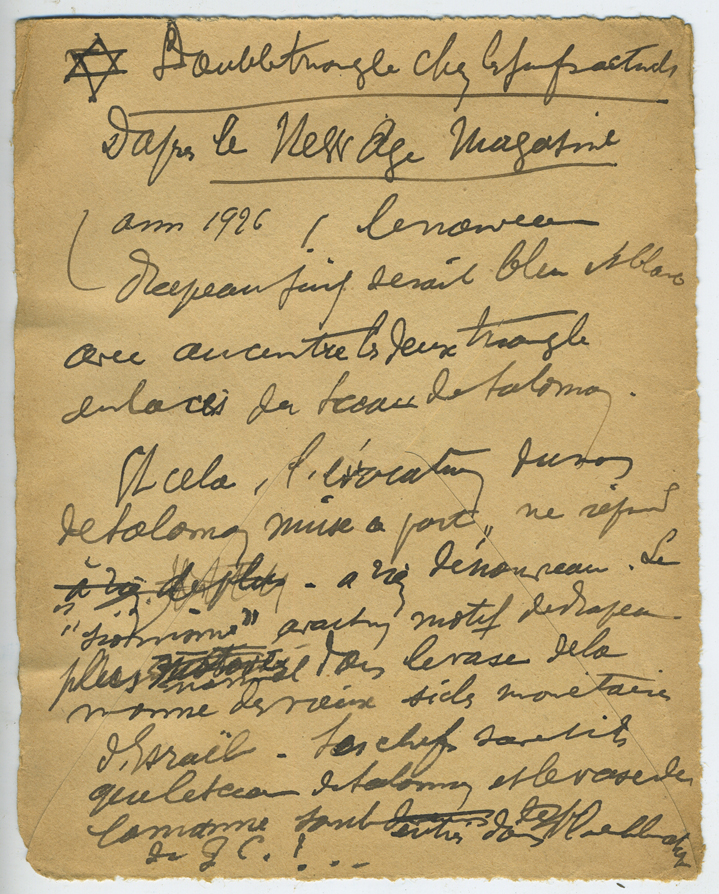 Double triangle chez les Juifs actuels
D'après le New Age Magazine
(ann 1926 ( le nouveau
drapeau juif serait bleu et blanc
avec au centre les deux triangle
enlacés du Sceau de Salomon.
Et cela, l'évocation du nom
de Salomon mise à part, ne répond
à rien de plus - a rien de nouveau. Le
"sionisme" avait un motif de drapeau
plus normal dans le vase de la
manne des vieux sicles monétaires
d'Israël - Les chefs savent ils
que le sceau de Salomon et le vase de
la manne sont entrés dans
de J C. ! ...